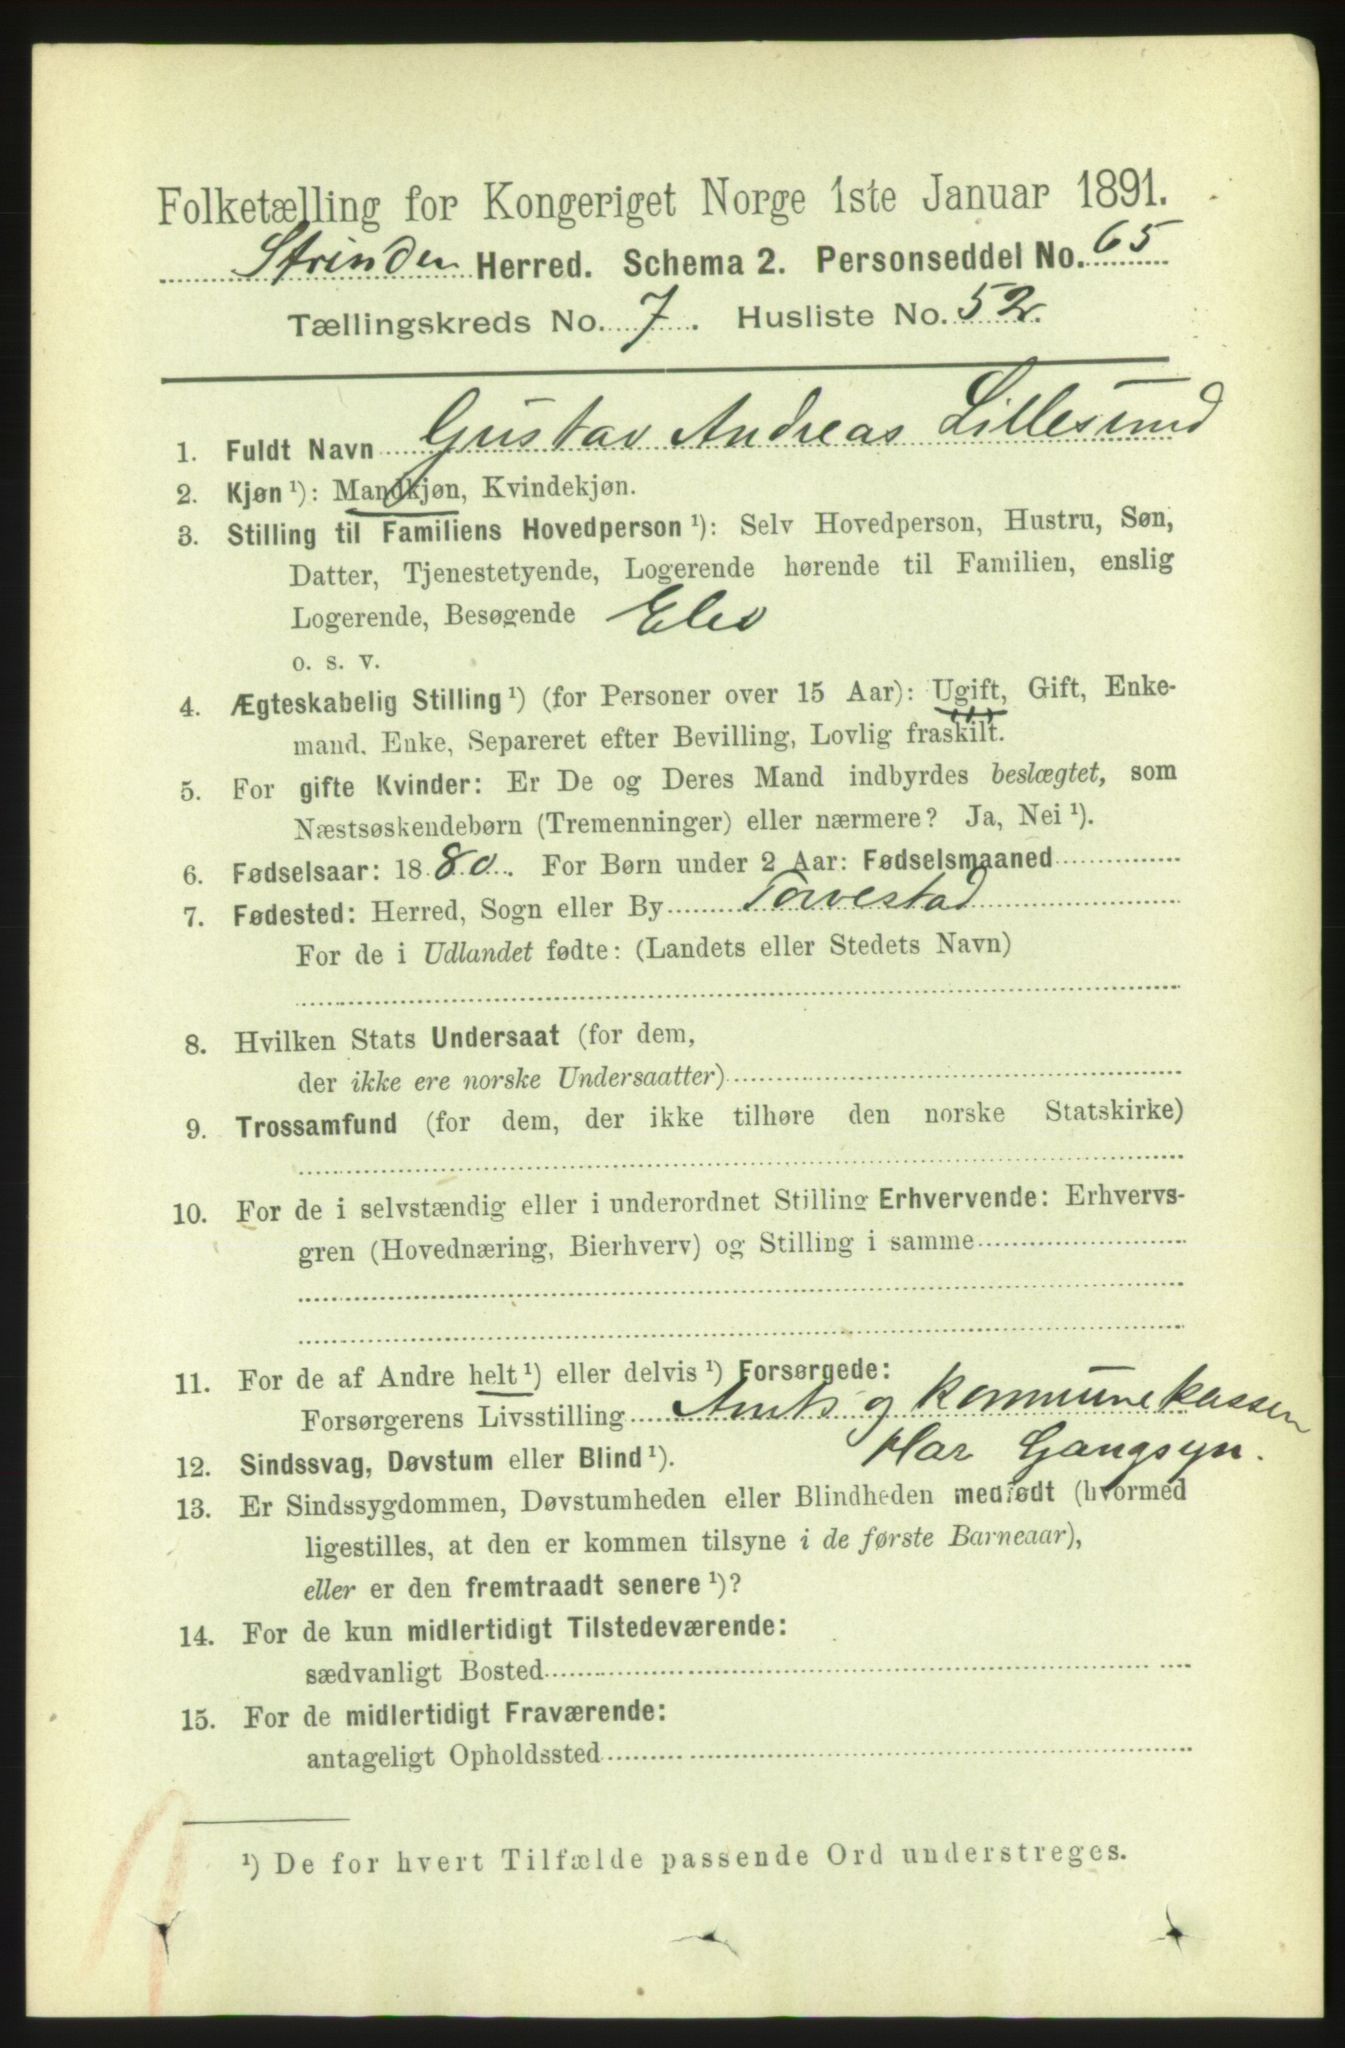 Folketælling for Kongeriget Norge 1ste Januar 1891.
Strinden Herred. Schema 2. Personseddel No. 65
Tællingskreds No. 7. Husliste No. 52.
1. Fuldt Navn Gustav Andreas Lillesund
2. Kjøn ¹): Mandkjøn, Kvindekjøn.
3. Stilling til Familiens Hovedperson ¹): Selv Hovedperson, Hustru, Søn,
Datter, Tjenestetyende, Logerende hørende til Familien, enslig
Logerende, Besøgende Elev
o. s. v.
4. Ægteskabelig Stilling ¹) (for Personer over 15 Aar): Ugift, Gift, Enke-
mand, Enke, Separeret efter Bevilling, Lovlig fraskilt.
5. For gifte Kvinder: Er De og Deres Mand indbyrdes beslægtet, som
Næstsøskendebørn (Tremenninger) eller nærmere? Ja, Nei ¹).
6. Fødselsaar: 1880. For Børn under 2 Aar: Fødselsmaaned
7. Fødested: Herred, Sogn eller By Torvestad
For de i Udlandet fødte: (Landets eller Stedets Navn)
8. Hvilken Stats Undersaat (for dem,
der ikke ere norske Undersaatter)
9. Trossamfund (for dem, der ikke tilhøre den norske Statskirke)
10. For de i selvstændig eller i underordnet Stilling Erhvervende: Erhvervs-
gren (Hovednæring, Bierhverv) og Stilling i samme
11. For de af Andre helt ¹) eller delvis ¹) Forsørgede:
Forsørgerens Livsstilling Amts og Kommunekassen
12. Sindssvag, Døvstum eller Blind ¹). Har Gangsyn.
13. Er Sindssygdommen, Døvstumheden eller Blindheden medfødt (hvormed
ligestilles, at den er kommen tilsyne i de første Barneaar),
eller er den fremtraadt senere ¹)?
14. For de kun midlertidigt Tilstedeværende:
sædvanligt Bosted
15. For de midlertidigt Fraværende:
antageligt Opholdssted
¹) De for hvert Tilfælde passende Ord understreges.